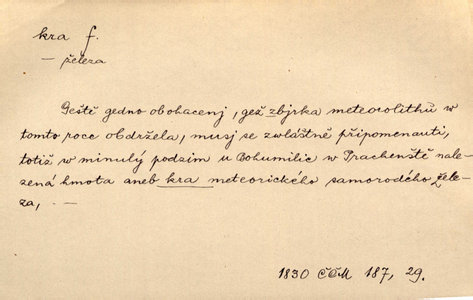 kra f.
— železa
Geště gedno obohacenj, gež zbjrka meteorolithů w
tomto roce obdržela, musj se zwláštně připomenauti,
totiž w minulý podzim u Bohumilic w Prachenště nale-
zená hmota aneb kra meteorického samorodého žele-
za, - —
1830 ČČM 187, 29.